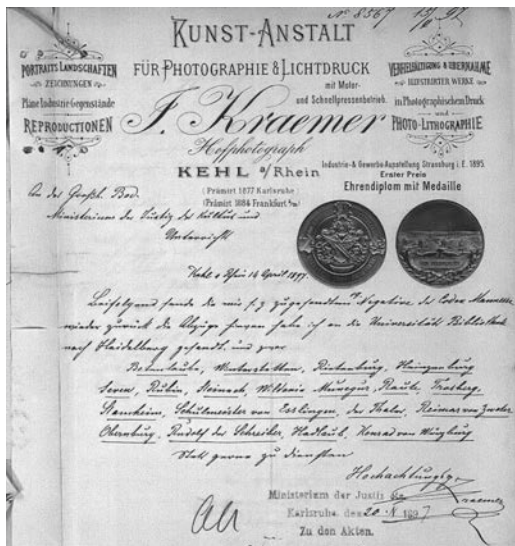 No 8567 15/IV 97
KUNST-ANSTALT
FÜR PHOTOGRAPHIE & LICHTDRUCK
mit Motor-
und Schnellpressenbetrieb.
PORTRAITS LANDSCHAFTEN
ZEICHNUNGEN
Pläne Industrie Gegenstände
REPRODUCTIONEN
VERVIELFÄLTIGUNG & ÜBERNAHME
ILLUSTRIRTER WERKE
in Photographischem Druck
und
PHOTO-LITHOGRAPHIE
F. Kraemer
Hofphotograph
KEHL a/Rhein
(Prämirt 1877 Karlsruhe)
(Prämirt 1884 Frankfurt a/m)
Industrie- & Gewerbe-Ausstellung Strassburg i. E. 1895.
Erster Preis
Ehrendiplom mit Medaille
An das Großh. Bad.
Ministerium der Justiz des Kultus und
Unterricht
Kehl a Rhein 14 April 1897.
Beifolgend sende die mir s. z. zugesandten Negative des Codex Manesse
wieder zurück die Abzüge hiervon habe ich an die Universität Bibliothek
nach Heidelberg gesandt, und zwar
Botenlaube, Winterstetten, Rietenburg, Heinzenburg
Seven, Rubin, Steinach, Wildonie Munegur, Raute, Trosberg,
Stamheim, Schulmeister von Esslingen, der Thaler, Reimar von Zweter
Obernburg, Rudolf der Schreiber, Hadlaub, Konrad von Würzburg
Stets gerne zu diensten
Hochachtungsv.
F. Kraemer
Ministerium der Justiz etc
Karlsruhe, den 20. IV 1897
Zu den Akten.